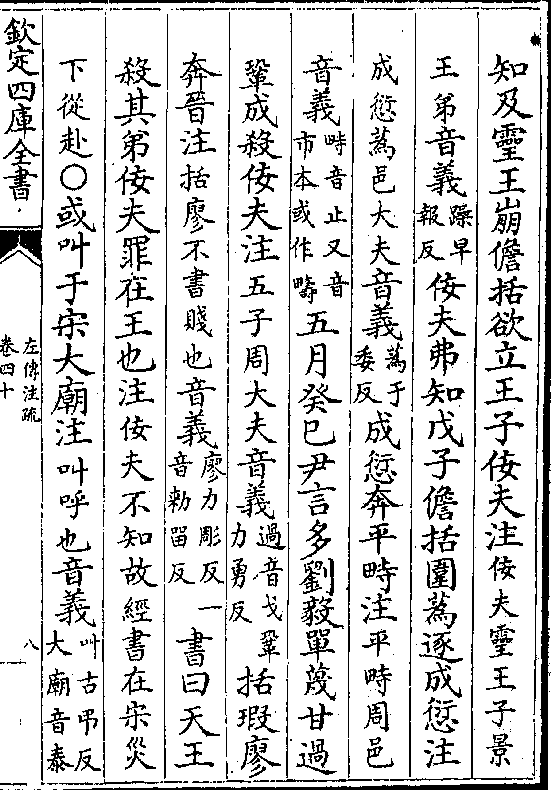 知及靈王崩儋括欲立王子佞夫注佞夫靈王子景
王弟音義躁早報反佞夫弗知戊子儋括圍蒍逐成愆注
成愆蒍邑大夫音義蒍于委反成愆奔平畤注平畤周邑
音義畤音止又音市本或作疇五月癸巳尹言多劉毅單蔑甘過
鞏成殺佞夫注五子周大夫音義過音戈鞏力勇反括瑕廖
奔晉注括廖不書賤也音義廖力彫反一音勑留反書曰天王
殺其弟佞夫罪在王也注佞夫不知故經書在宋災
下從赴○或叫于宋大廟注叫呼也音義叫古弔反大廟音泰
欽定四庫全書
左傳注疏
卷四十
八